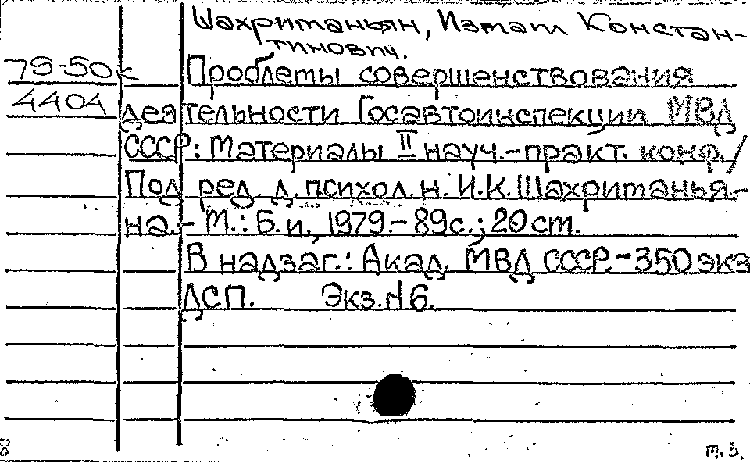 Шахриманьян, Измаил Констан-
тинович.
79-50к
4404
Проблемы совершенствования
деятельности Госавтоинспекции МВД
СССР: Материалы II науч.-практ. конф./
Под ред. д. психол. н. И.К. Шахриманья-
на.- М.: Б.и., 1979.- 89с.; 20 см.
В надзаг.: Акад. МВД СССР.- 350 экз
ДСП. Экз. №6.
т.б.